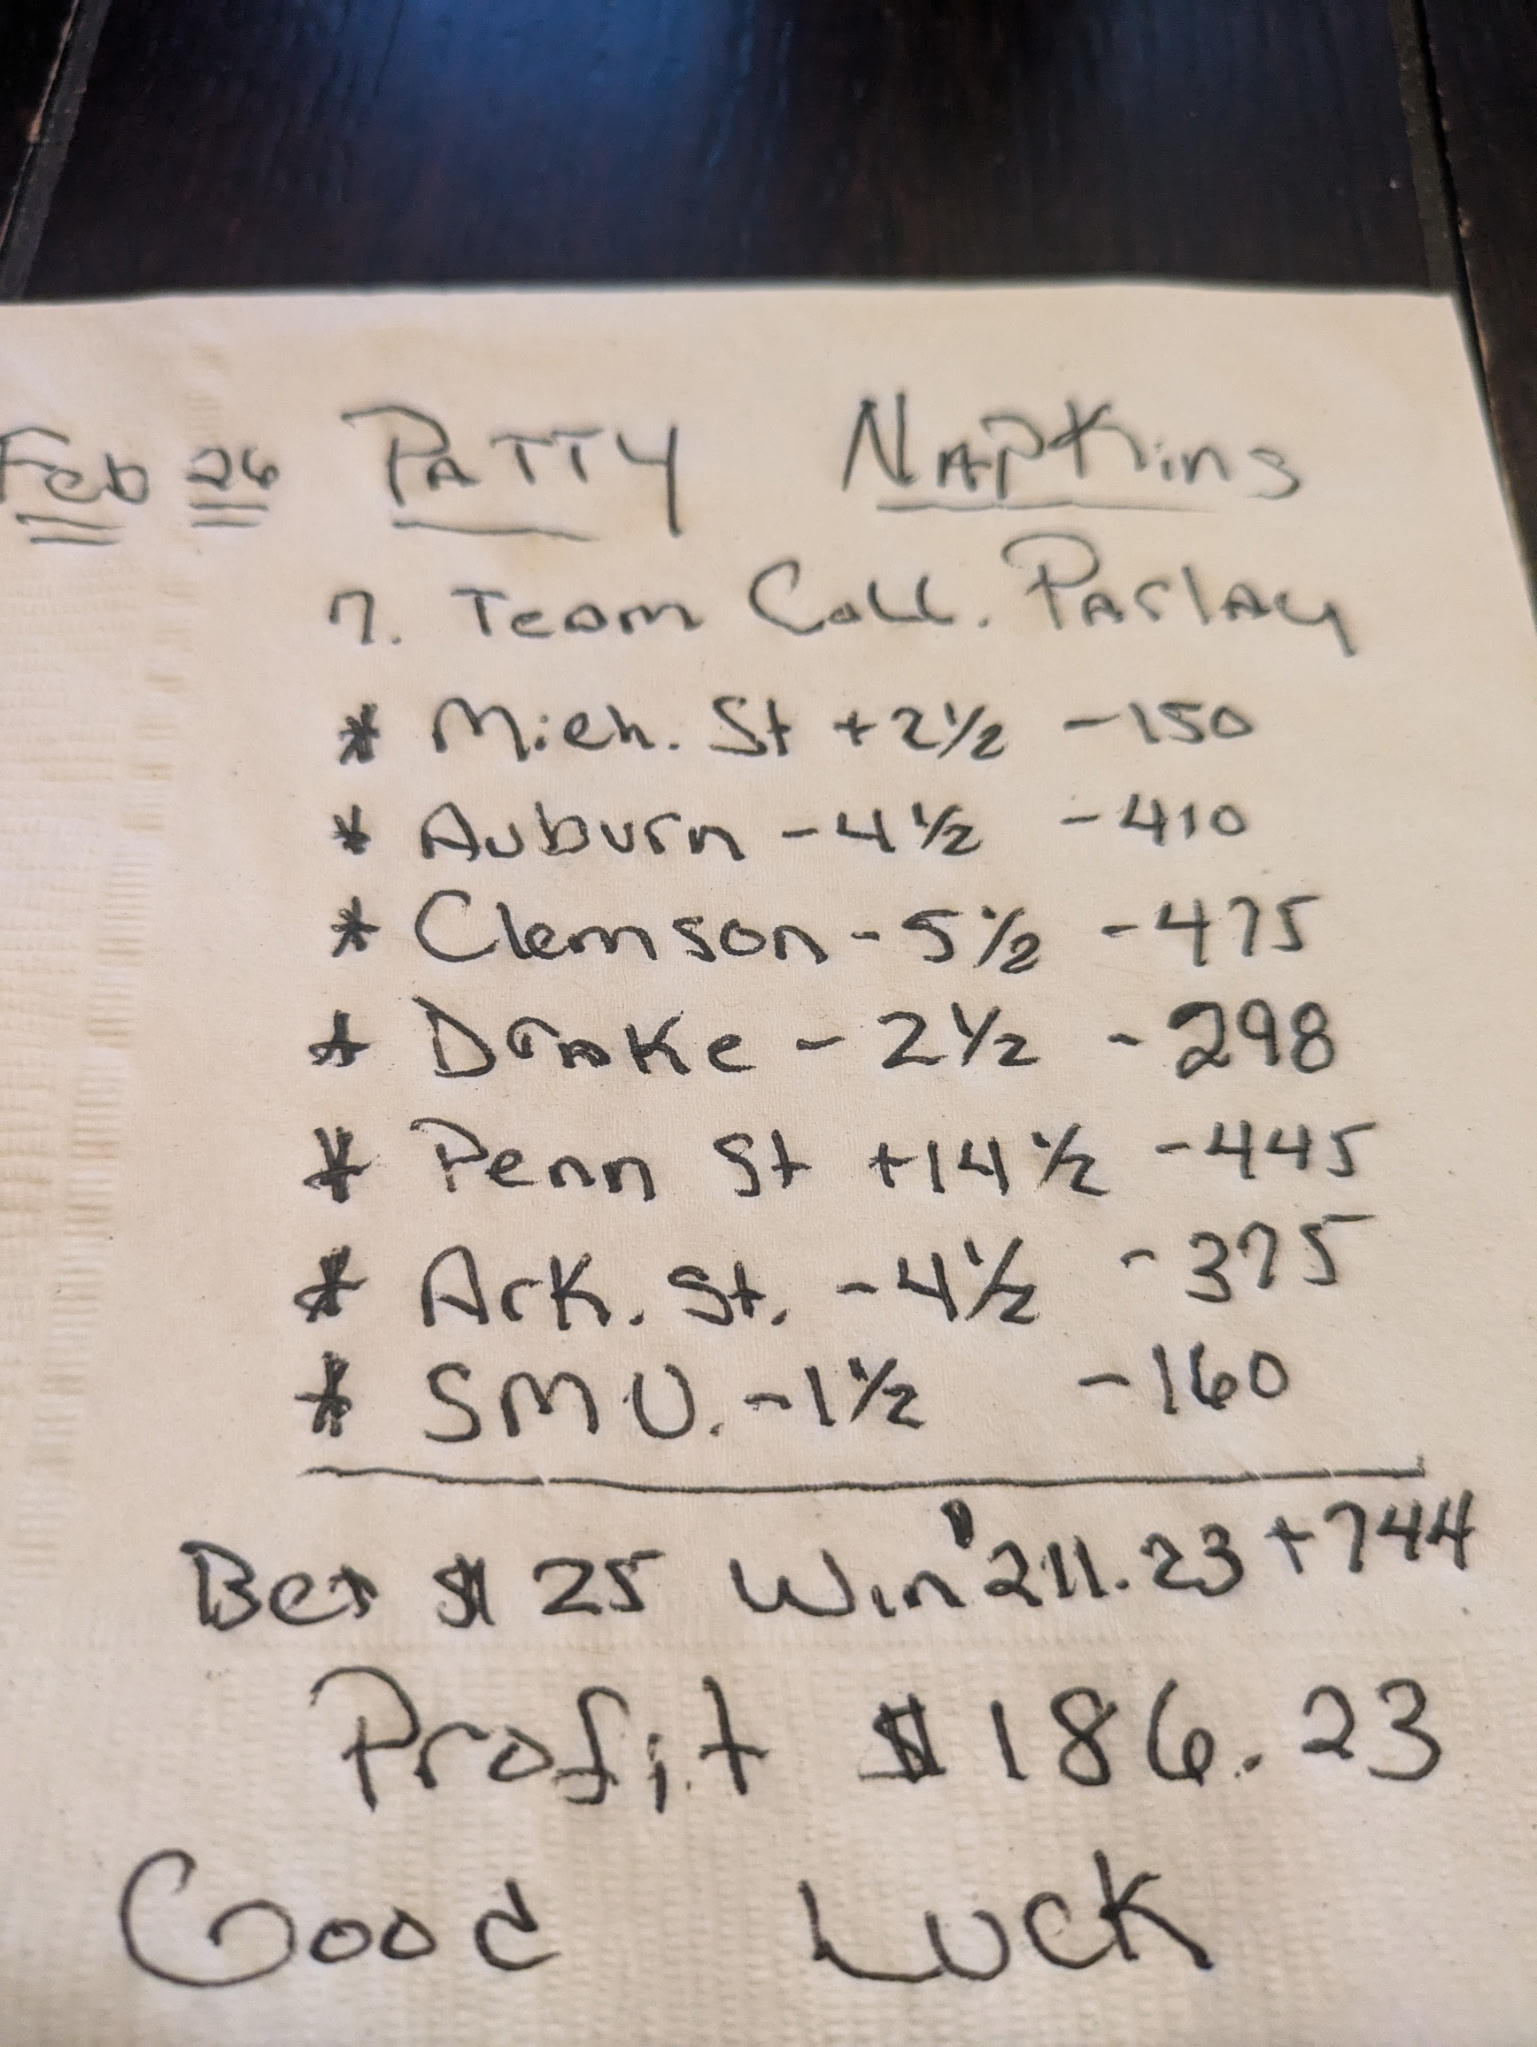 Feb 26 PATTY NAPKins
7. Team Coll. Parlay
* Mich. St +2½ -150
* Auburn -4½ -410
* Clemson -5½ -475
* Drake -2½ -298
* Penn St +14½ -445
* Ark. St. -4½ -375
* SMU. -1½ -160
Bet $25 Win $211.23 +744
Profit $186.23
Good Luck